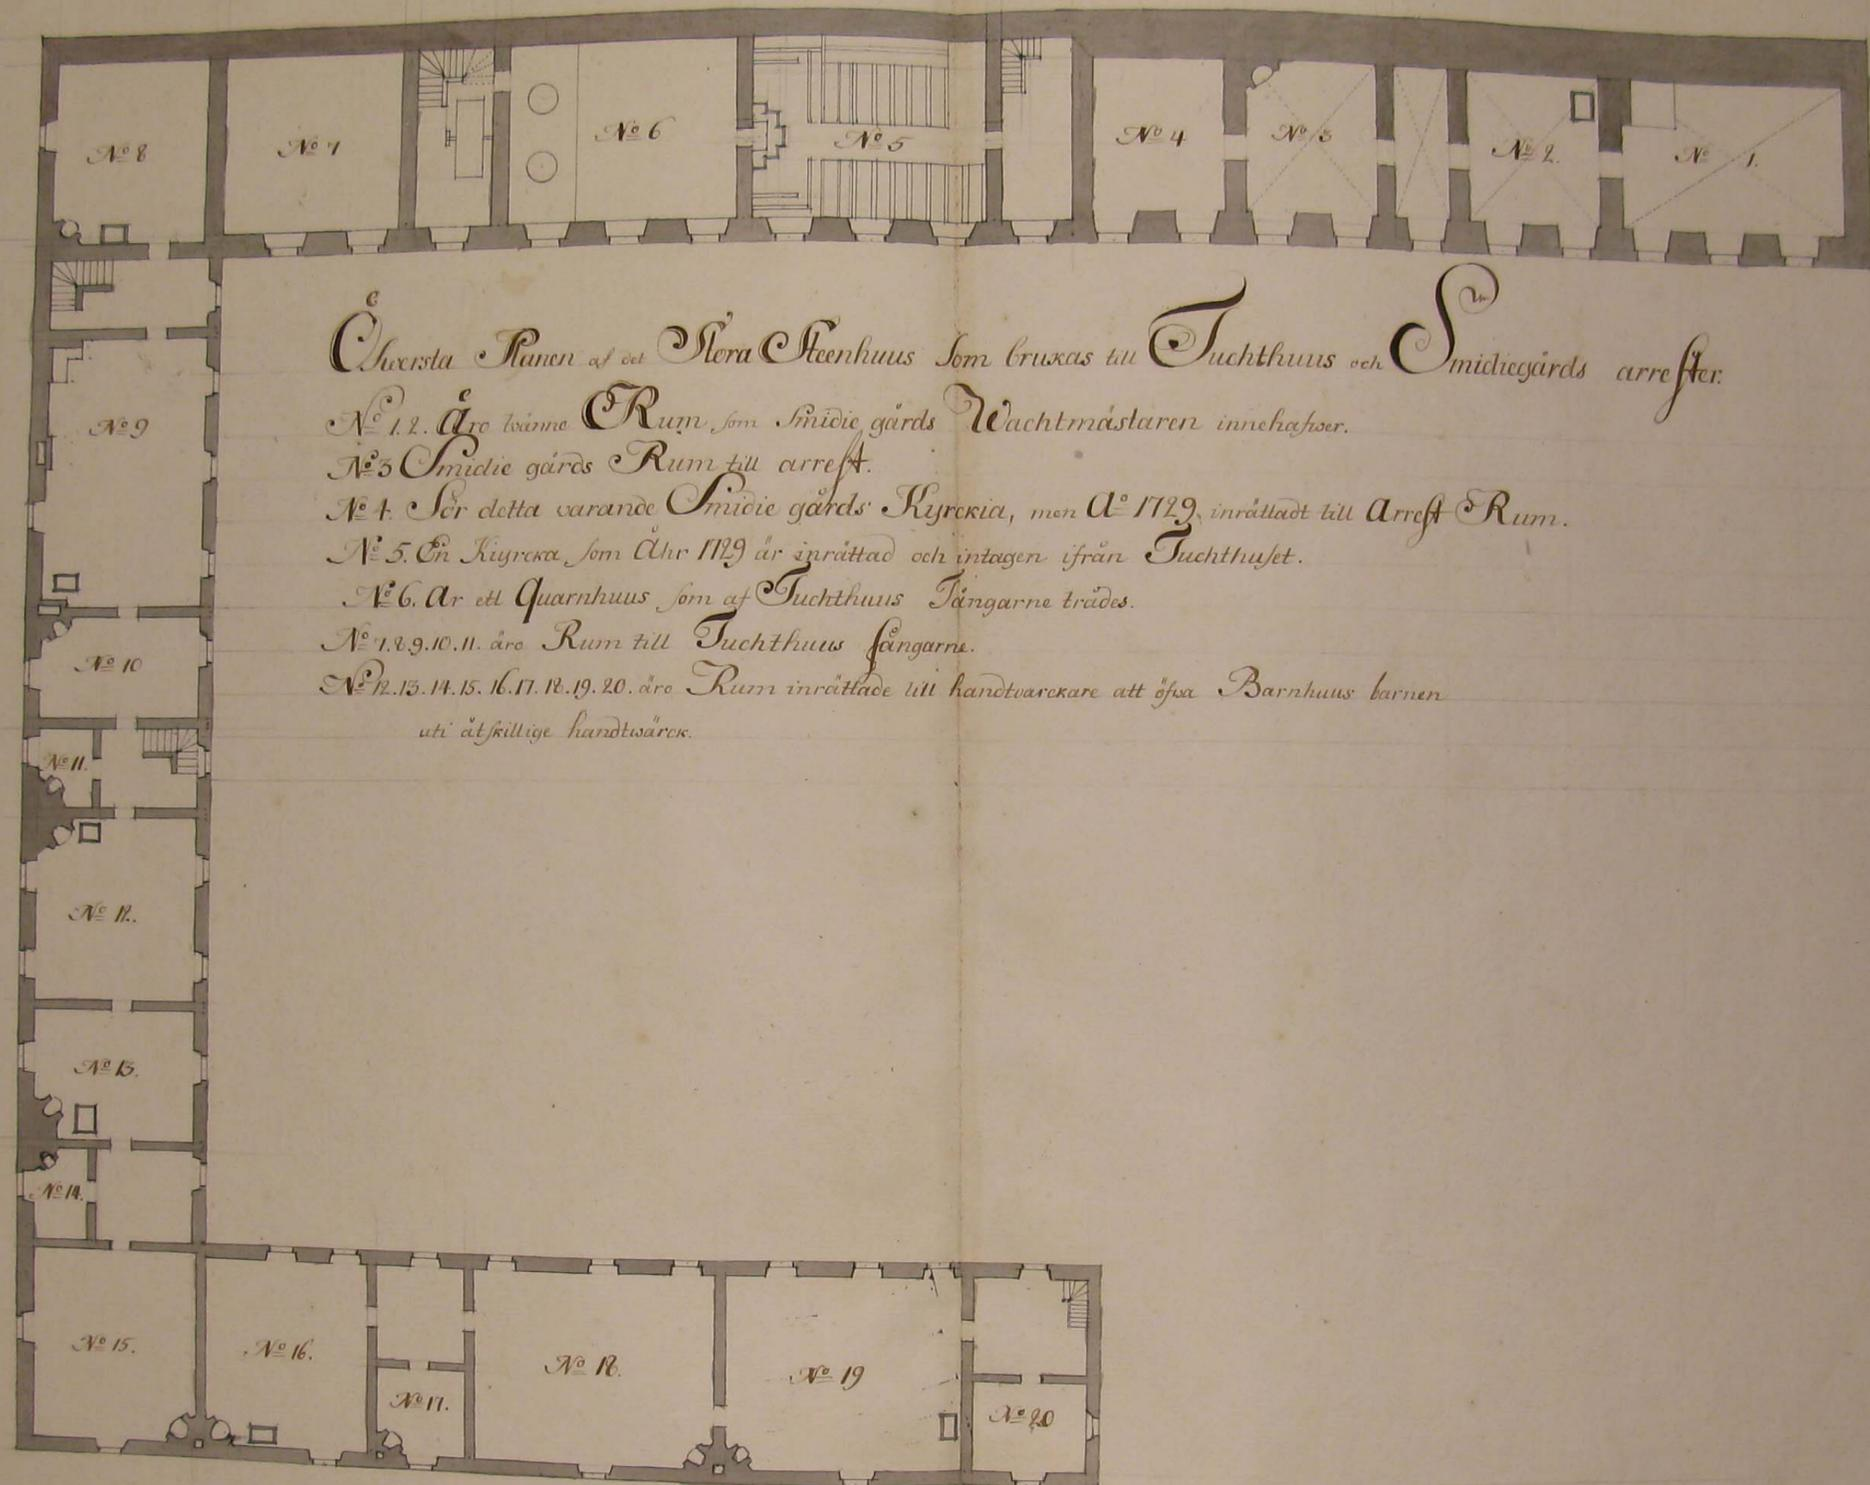 No 8
No 7
No 6
No 5
No 4
No 3
No 2.
No 1.
Öfwersta Planen af det Stora Steenhuus som bruκas till Tuchthuus och Smidiegårds arrester.
No 1.2. Äro twänne Rum som Smidie gårds Wachtmästaren innehafwer.
No 3 Smidie gårds Rum till arrest.
No 4. För detta varande Smidie gårds Kyrckia, men Ao 1729 inrättadt till Arrest Rum.
No 5. En Kiyrcka som Åhr 1729 är inrättad och intagen ifrån Tuchthuset.
No 6. Ar ett Quarnhuus som af Tuchthuus Fångarne trädes.
No 7.8.9.10.11. äro Rum till Tuchthuus fångarne.
No 12.13.14.15.16.17.18.19.20. äro Rum inrättade till handtvarckare att öfwa Barnhuus barnen
uti åtskillige handtwärck.
No 9
No 10
No 11.
No 12.
No 13.
No 14.
No 15.
No 16.
No 17.
No 18.
No 19
No 20